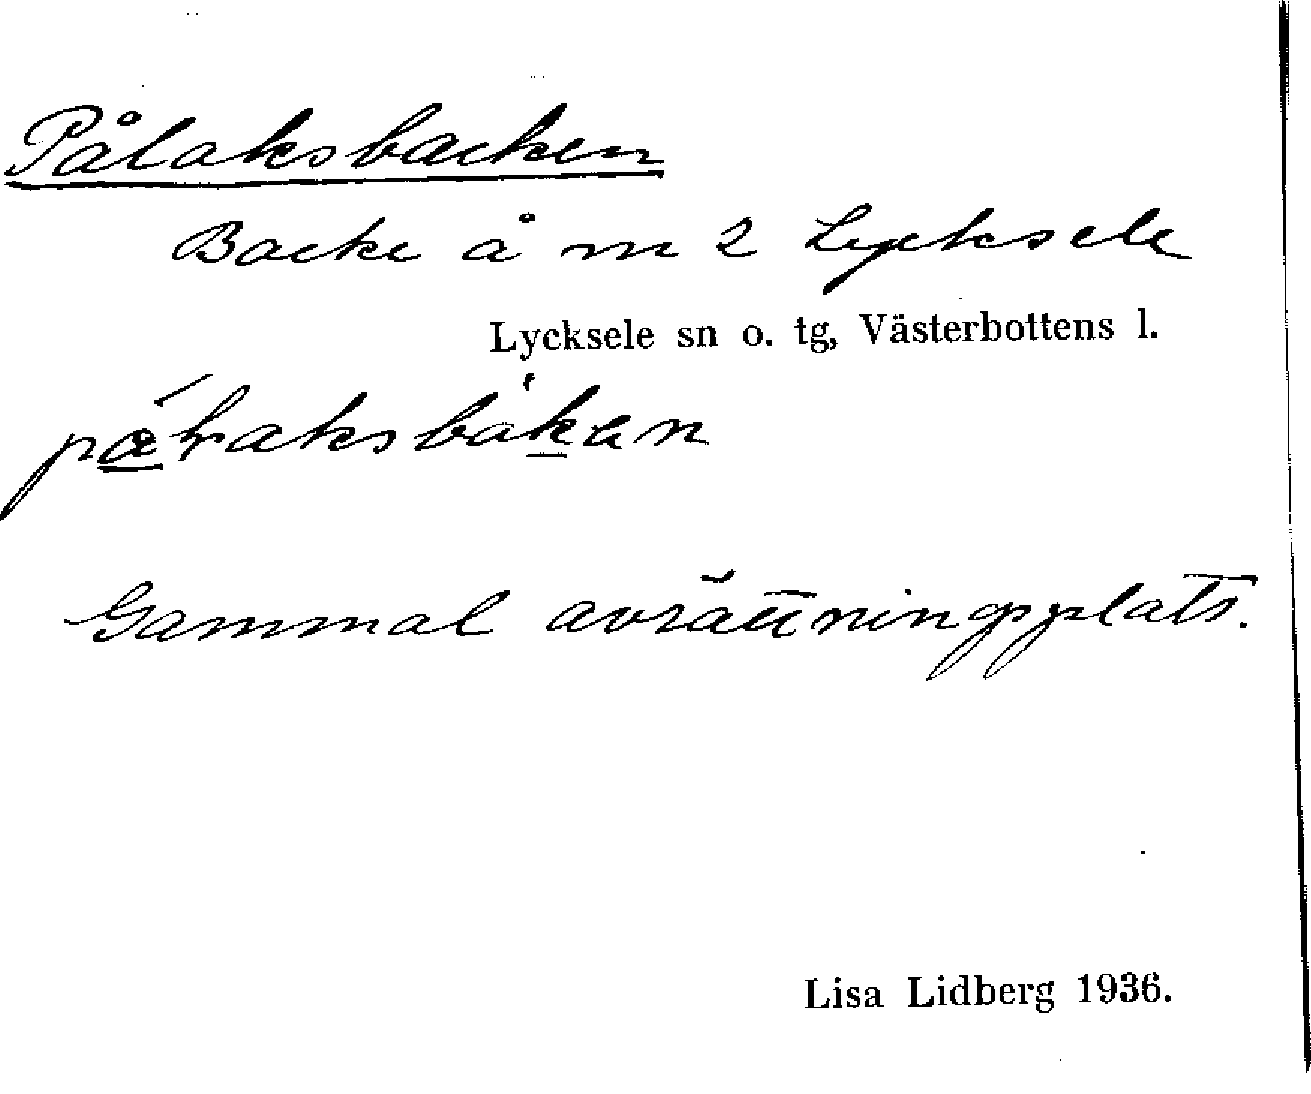 Pålaksbacken
Backe å m 2 Lycksele
Lycksele sn o. tg, Västerbottens l.
Gammal avrättningsplats.
Lisa Lidberg 1936.